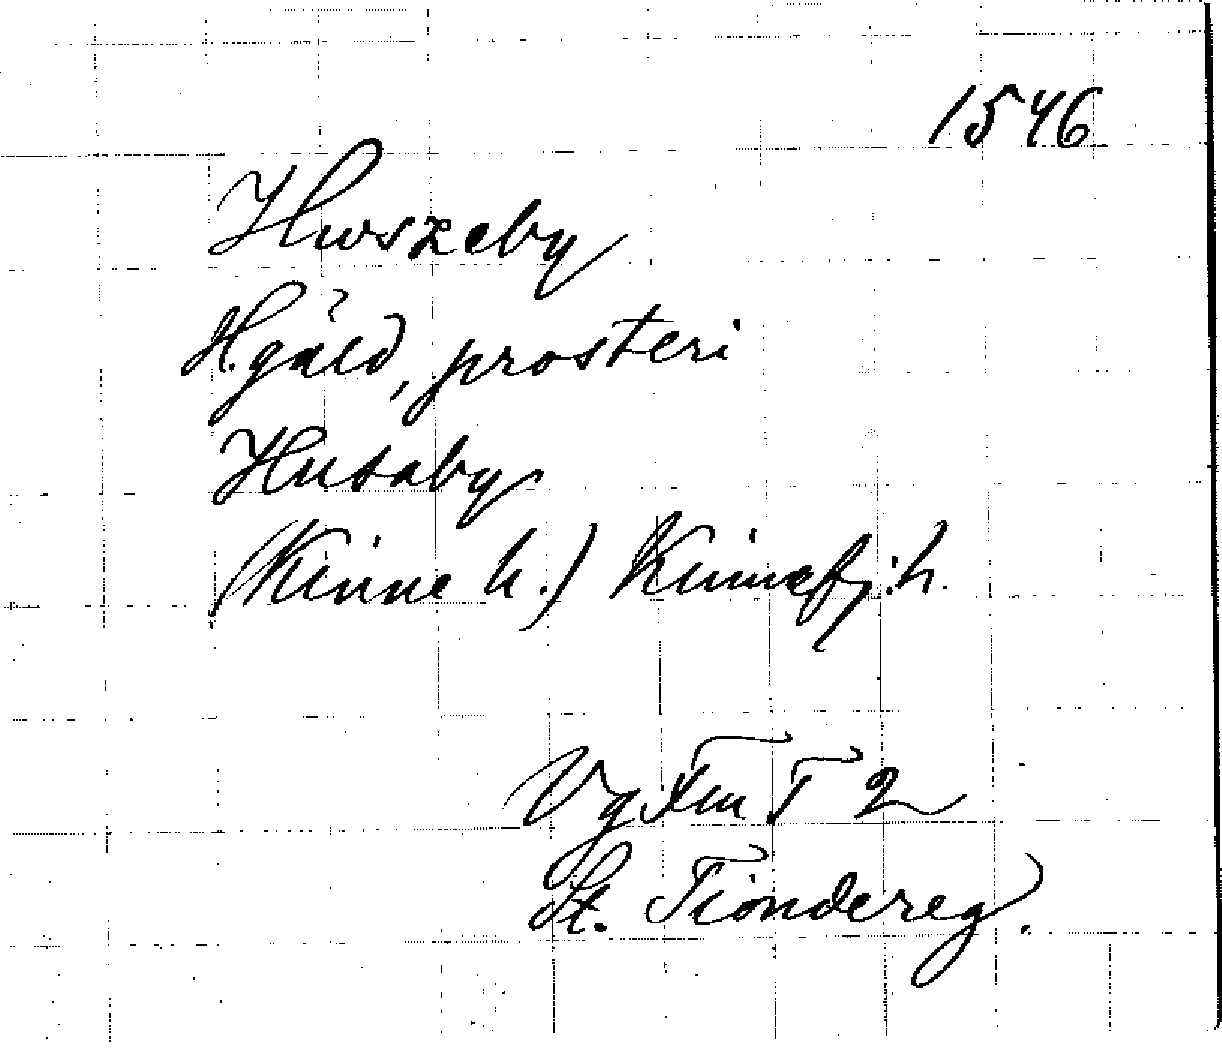 1546
Hwszeby
H. gäld, prosteri
Husaby
(Kinne h.) Kinnefj. h.
Vg Fm T 2
St. Tiondereg.